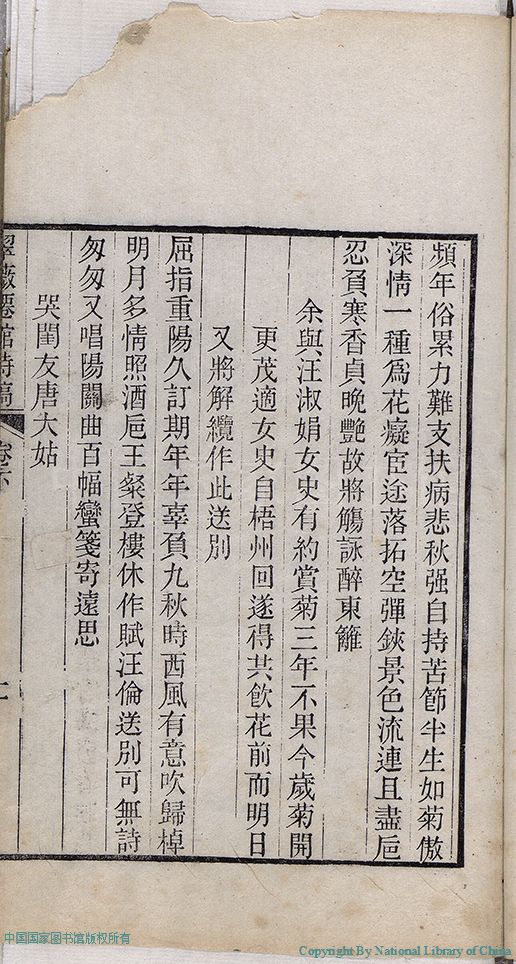 頻年俗累力難支扶病悲秋强自持苦節半生如菊傲
深情一種爲花癡宦途落拓空彈鋏景色流連且盡巵
忍負寒香貞晚艷故將觴詠醉東籬
余與汪淑娟女史有約賞菊三年不果今歲菊開
更茂適女史自梧州回遂得共飮花前而明日
又將解纜作此送別
屈指重陽久訂期年年辜負九秋時西風有意吹歸棹
明月多情照酒巵王粲登樓休作賦汪倫送別可無詩
匆匆又唱陽關曲百幅蠻箋寄遠思
哭閨友唐大姑
翠薇僊館詩稿
卷下
中国国家图书馆版权所有
Copyright By National Library of China